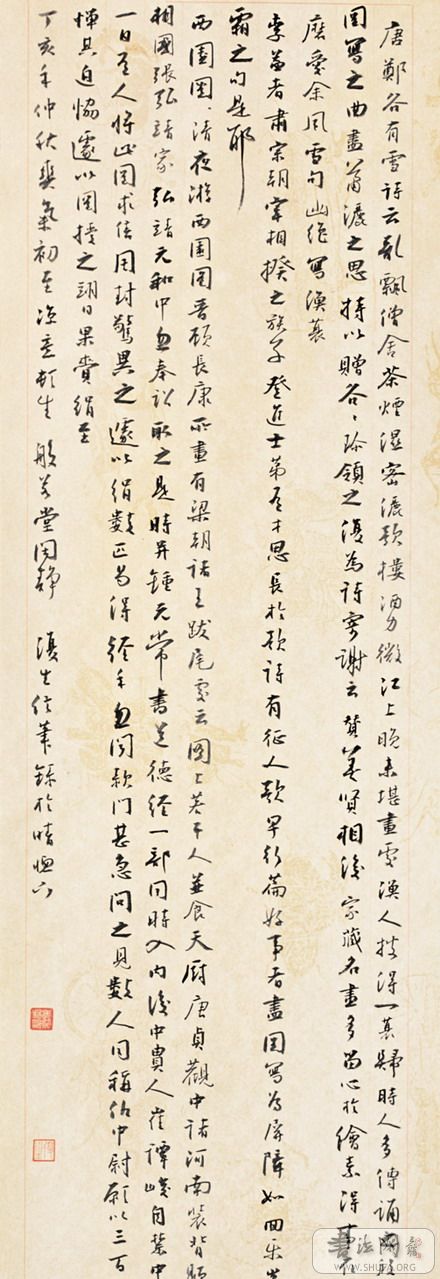 唐鄭谷有雪詩云亂飄僧舍茶煙濕密灑歌樓酒力微江上晚來堪畫處漁人披得一蓑歸時人多傳誦
圖寫之曲盡蕭灑之思持以贈谷谷珍領之復為詩寄謝云贊善賢相後家藏名畫多留心於繪素得事在
磨愛余風雪句幽絕寫漁蓑
李益者肅宗朝宰相揆之族子登進士第有才思長於歌詩有征人歌早行篇好事者盡圖寫為屏障如回樂峰
霜之句是耶
西園圖清夜游西園圖晉顧長康所畫有梁朝諸王跋尾處云圖上若干人並食天廚唐貞觀中褚河南裝背題
相國張弘靖家弘靖元和中忽奉詔取之是時并鍾元常書道德經一部同時入內後中貴人崔譚峻自禁中
一日有人將此圖求售周封驚異之遽以絹數匹易得經年忽聞款門甚急問之見數人同稱仇中尉願以三百
憚其迫脅遽以圖授之翊日果賫絹至
丁亥年仲秋爽氣初至涼意頓生 般若堂闃靜 復生信筆錄於晴窗下
WWW.SHUFA.ORG